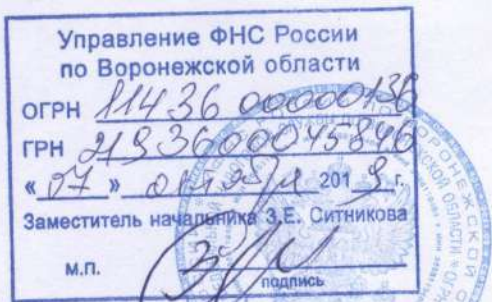 Управление ФНС России
по Воронежской области
ОГРН 1143600000136
ГРН 2193600045846
« 07 » октября 2019 г.
Заместитель начальника З.Е. Ситникова
м.п.
подпись